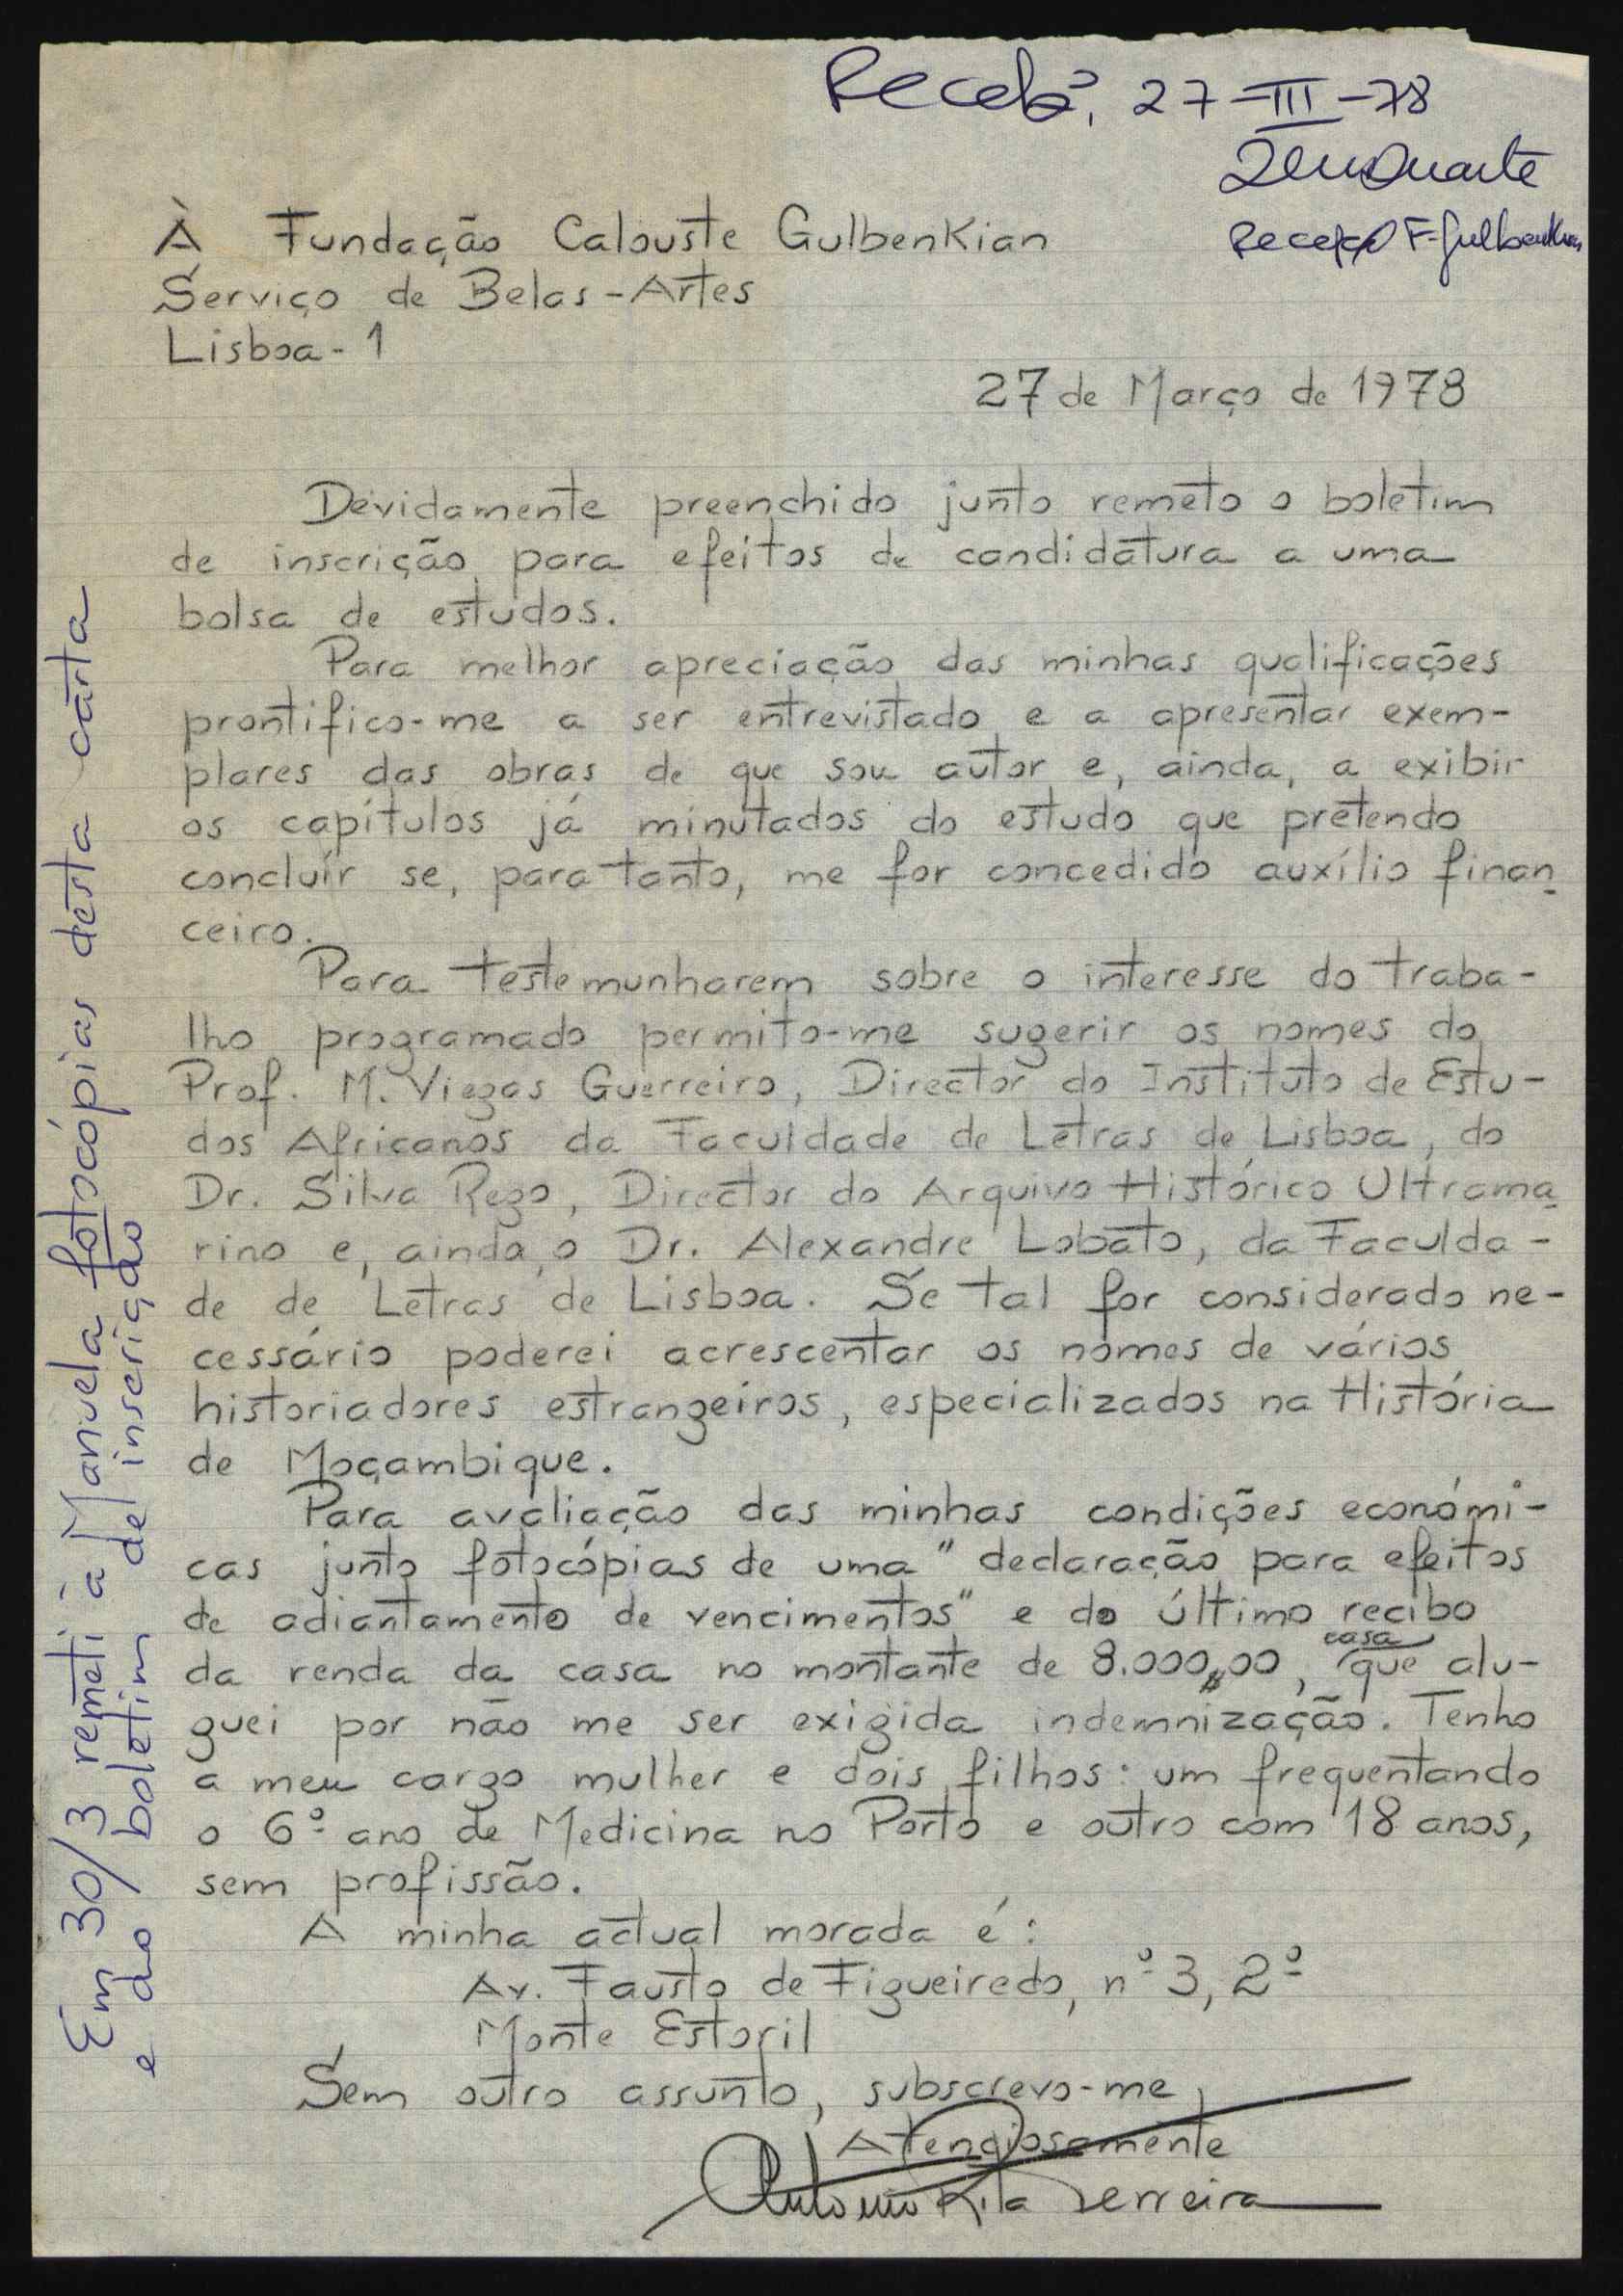 Recebi, 27-III-78
Duarte
Recepção F. Gulbenkian
À Fundação Calouste Gulbenkian
Serviço de Belas-Artes
Lisboa-1
27 de Março de 1978
Devidamente preenchido junto remeto o boletim
de inscrição para efeitos de candidatura a uma
bolsa de estudos.
Para melhor apreciação das minhas qualificações
prontifico-me a ser entrevistado e a apresentar exem-
plares das obras de que sou autor e, ainda, a exibir
os capítulos já minutados do estudo que pretendo
concluír se, para tanto, me for concedido auxílio finan-
ceiro.
Para testemunharem sobre o interesse do traba-
lho programado permito-me sugerir os nomes do
Prof. M. Viegas Guerreiro, Director do Instituto de Estu-
dos Africanos da Faculdade de Letras de Lisboa, do
Dr. Silva Rego, Director do Arquivo Histórico Ultrama-
rino e, ainda, o Dr. Alexandre Lobato, da Faculda-
de de Letras de Lisboa. Se tal for considerado ne-
cessário poderei acrescentar os nomes de vários
historiadores estrangeiros, especializados na História
de Moçambique.
Para avaliação das minhas condições económi-
cas junto fotocópias de uma "declaração para efeitos
de adiantamento de vencimentos" e do último recibo
da renda da casa no montante de 8.000$00, casa que alu-
guei por não me ser exigida indemnização. Tenho
a meu cargo mulher e dois filhos: um frequentando
o 6º ano de Medicina no Porto e outro com 18 anos,
sem profissão.
A minha actual morada é:
Av. Fausto de Figueiredo, nº 3, 2º
Monte Estoril
Sem outro assunto, subscrevo-me,
Atenciosamente
António Rita Ferreira
Em 30/3 remeti à Manuela fotocópias desta carta
e do boletim de inscrição